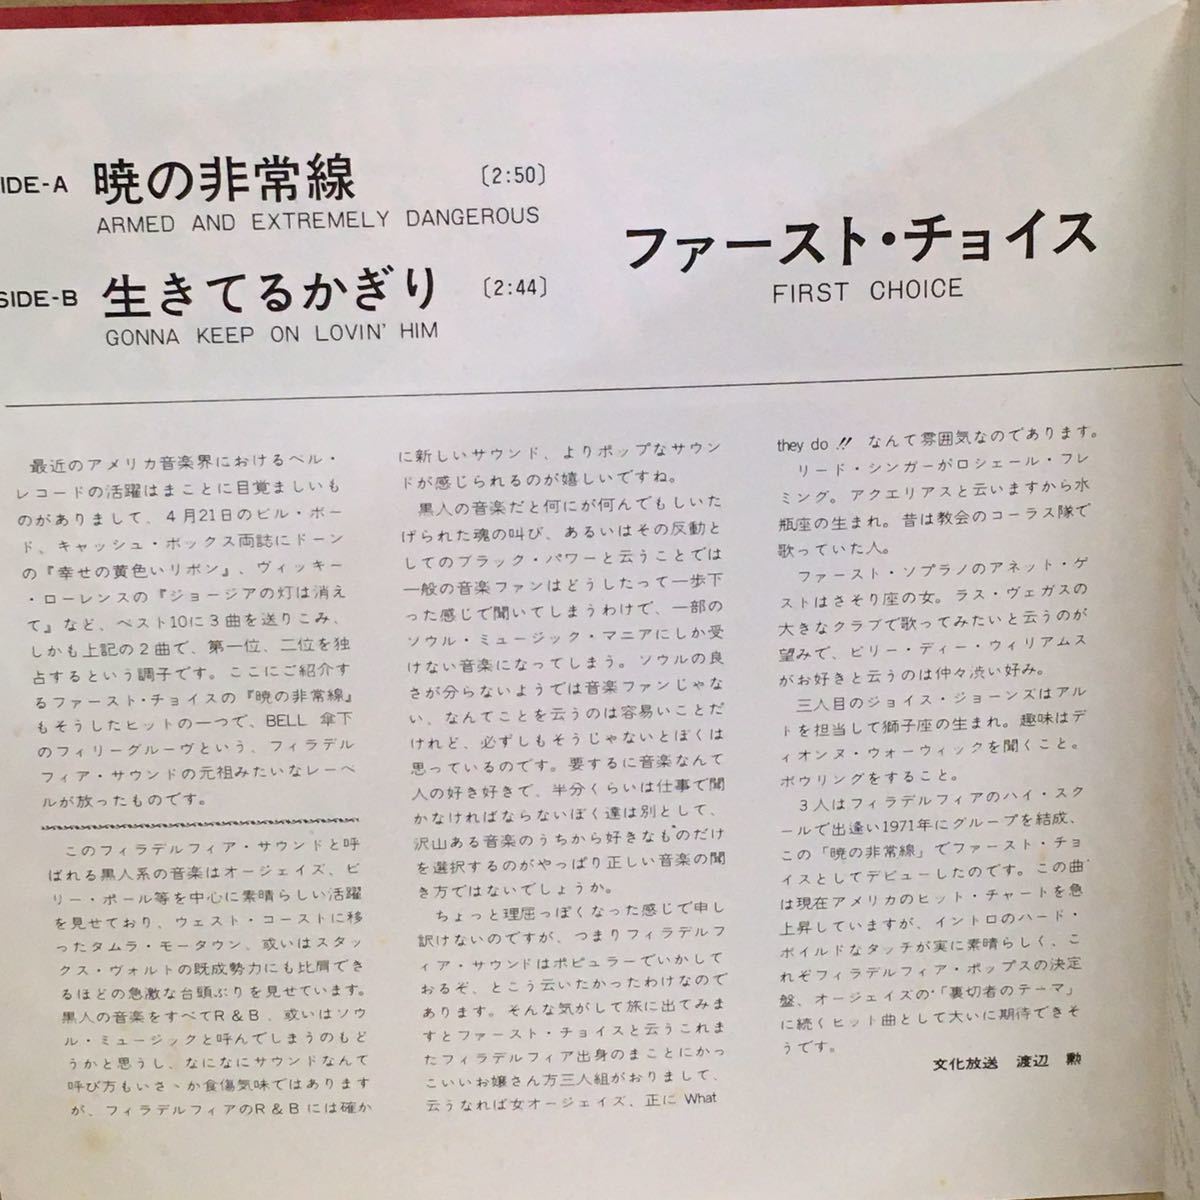 IDE-A 暁の非常線 〔2:50〕
ARMED AND EXTREMELY DANGEROUS
SIDE-B 生きてるかぎり 〔2:44〕
GONNA KEEP ON LOVIN' HIM
ファースト・チョイス
FIRST CHOICE
最近のアメリカ音楽界におけるベル・
レコードの活躍はまことに目覚ましいも
のがありまして、4月21日のビル・ボー
ド、キャッシュ・ボックス両誌にドーン
の『幸せの黄色いリボン』、ヴィッキー
・ローレンスの『ジョージアの灯は消え
て』など、ベスト10に3曲を送りこみ、
しかも上記の2曲で、第一位、二位を独
占するという調子です。ここにご紹介す
るファースト・チョイスの『暁の非常線』
もそうしたヒットの一つで、BELL 傘下
のフィリーグルーヴという、フィラデル
フィア・サウンドの元祖みたいなレーベ
ルが放ったものです。
このフィラデルフィア・サウンドと呼
ばれる黒人系の音楽はオージェイズ、ビ
リー・ポール等を中心に素晴らしい活躍
を見せており、ウェスト・コーストに移
ったタムラ・モータウン、或いはスタッ
クス・ヴォルトの既成勢力にも比肩でき
るほどの急激な台頭ぶりを見せています。
黒人の音楽をすべてR&B、或いはソウ
ル・ミュージックと呼んでしまうのもど
うかと思うし、なになにサウンドなんて
呼び方もいさゝか食傷気味ではあります
が、フィラデルフィアのR&Bには確か
に新しいサウンド、よりポップなサウン
ドが感じられるのが嬉しいですね。
黒人の音楽だと何にが何んでもしいた
げられた魂の叫び、あるいはその反動と
してのブラック・パワーと云うことでは
一般の音楽ファンはどうしたって一歩下
った感じで聞いてしまうわけで、一部の
ソウル・ミュージック・マニアにしか受
けない音楽になってしまう。ソウルの良
さが分らないようでは音楽ファンじゃな
い、なんてことを云うのは容易いことだ
けれど、必ずしもそうじゃないとぼくは
思っているのです。要するに音楽なんて
人の好き好きで、半分くらいは仕事で聞
かなければならないぼく達は別として、
沢山ある音楽のうちから好きなものだけ
を選択するのがやっぱり正しい音楽の聞
き方ではないでしょうか。
ちょっと理屈っぽくなった感じで申し
訳けないのですが、つまりフィラデルフ
ィア・サウンドはポピュラーでいかして
おるぞ、とこう云いたかったわけなので
あります。そんな気がして旅に出てみま
すとファースト・チョイスと云うこれま
たフィラデルフィア出身のまことにかっ
こいいお嬢さん方三人組がおりまして、
云うなれば女オージェイズ、正に What
they do !! なんて雰囲気なのであります。
リード・シンガーがロシェール・フレ
ミング。アクエリアスと云いますから水
瓶座の生まれ。昔は教会のコーラス隊で
歌っていた人。
ファースト・ソプラノのアネット・ゲ
ストはさそり座の女。ラス・ヴェガスの
大きなクラブで歌ってみたいと云うのが
望みで、ビリー・ディー・ウィリアムス
がお好きと云うのは仲々渋い好み。
三人目のジョイス・ジョーンズはアル
トを担当して獅子座の生まれ。趣味はデ
ィオンヌ・ウォーウィックを聞くこと。
ボウリングをすること。
3人はフィラデルフィアのハイ・スク
ールで出逢い1971年にグループを結成、
この「暁の非常線」でファースト・チョ
イスとしてデビューしたのです。この曲
は現在アメリカのヒット・チャートを急
上昇していますが、イントロのハード・
ボイルドなタッチが実に素晴らしく、こ
れぞフィラデルフィア・ポップスの決定
盤、オージェイズの「裏切者のテーマ」
に続くヒット曲として大いに期待できそ
うです。
文化放送 渡辺 勲